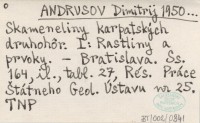 ANDRUSOV Dimitrij 1950...
Skameneliny karpatských
druhohôr. I: Rastliny a
prvoky. - Bratislava. Ss.
164, il., tabl. 27, Rés. Práce
Štátneho Geol. Ústavu no 25.
TNP